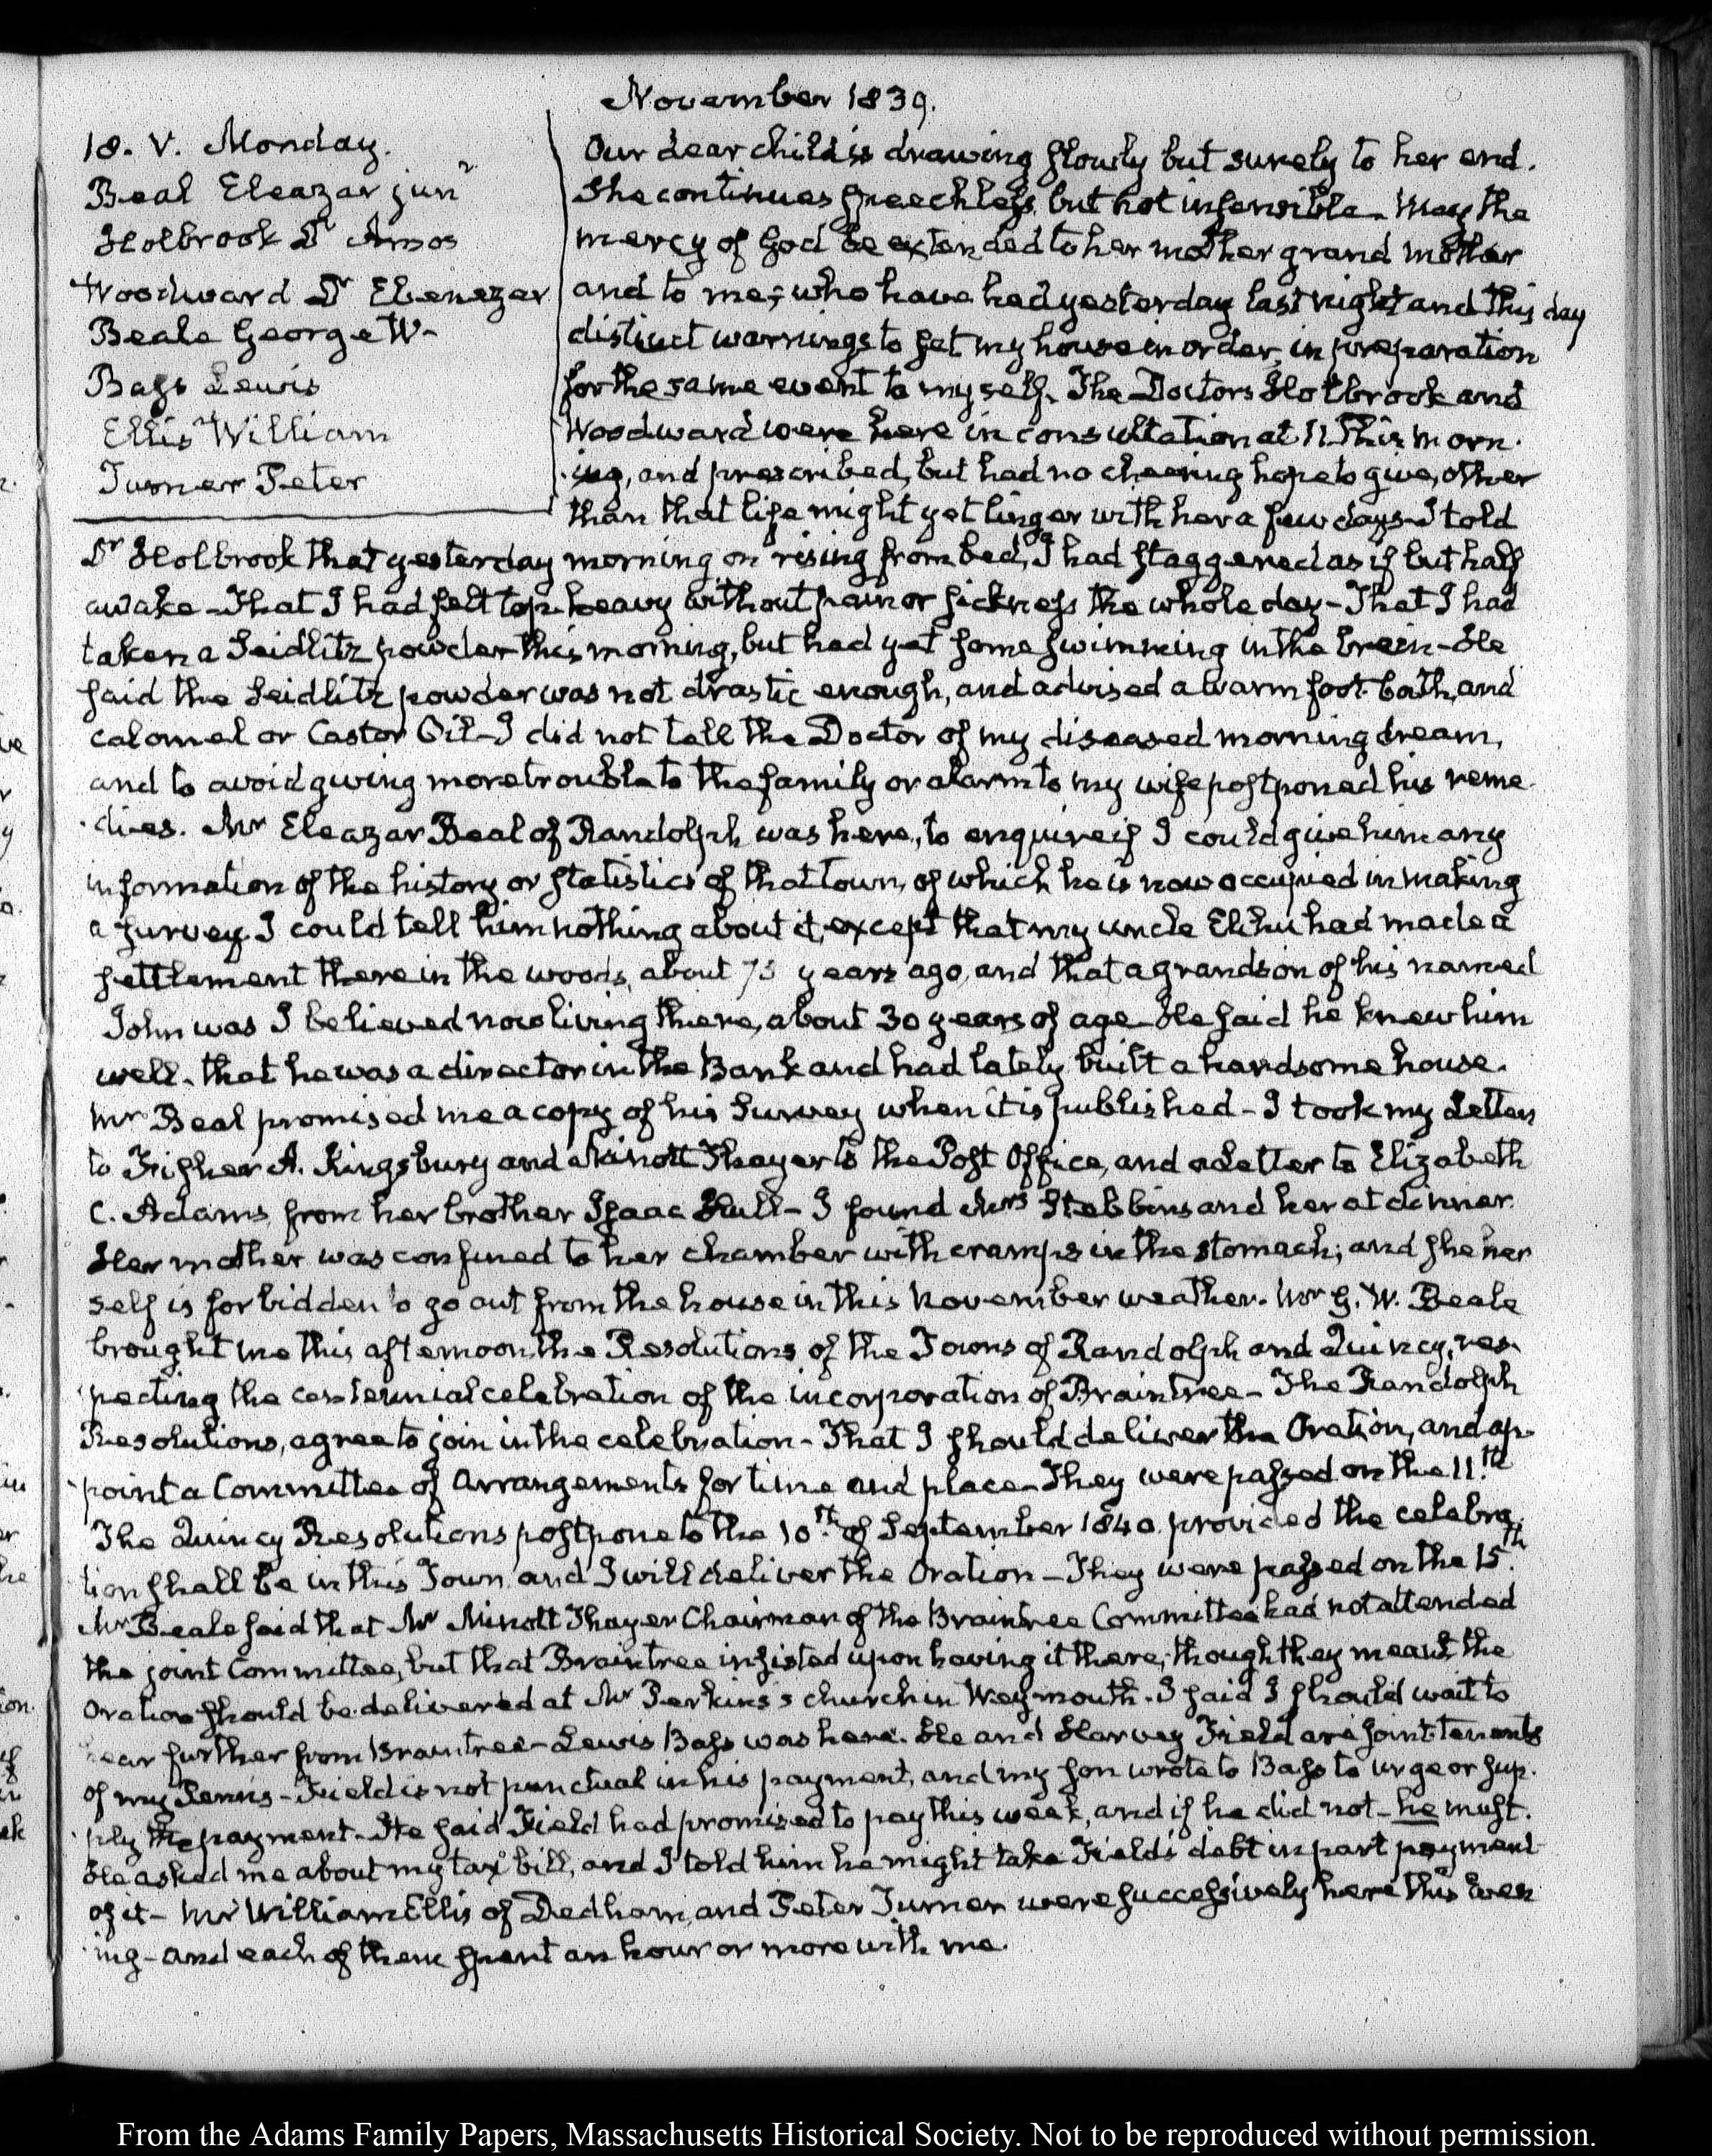 November 1839.
18. V. Monday.
Beal Eleazar junr
Holbrook Dr Amos
Woodward Dr Ebenezer
Beale George W-
Bass Lewis
Ellis William
Turner Peter
Our dear child is drawing slowly but surely to her end.
She continues speechless, but not insensible- May the
mercy of God be extended to her mother grand mother
and to me; who have had yesterday last night and this day
distinct warnings to set my house in order, in preparation
for the same event to myself. The Doctors Holbrook and
Woodward were here in consultation at 11 this morn-
ing, and prescribed, but had no cheering hope to give, other
than that life might yet linger with her a few days- I told
Dr Holbrook that yesterday morning on rising from bed, I had staggered as if but half
awake- That I had felt top-heavy without pain or sickness the whole day- That I had
taken a Seidlitz powder this morning, but had yet some swimming in the brain- He
said the Seidlitz powder was not drastic enough, and advised a warm foot-bath, and
calomel or Castor Oil- I did not tell the Doctor of my diseased morning dream,
and to avoid giving more trouble to the family or alarm to my wife postponed his reme-
dies. Mr Eleazar Beal of Randolph was here, to enquire if I could give him any
information of the history or statistics of that town, of which he is now occupied in making
a survey. I could tell him nothing about it, except that my uncle Elihu had made a
settlement there in the woods, about 75 years ago, and that a grandson of his named
John was I believed now living there, about 30 years of age- He said he knew him
well, that he was a director in the Bank and had lately built a handsome house.
Mr Beal promised me a copy of his Survey when it is published- I took my Letters
to Fisher A. Kingsbury and Minott Thayer to the Post Office, and a Letter to Elizabeth
C. Adams from her brother Isaac Hull- I found Mrs Stebbins and her at dinner.
Her mother was confined to her chamber with cramps in the stomach; and she her
self is forbidden to go out from the house in this November weather. Mr G. W. Beale
brought me this afternoon the Resolutions of the Towns of Randolph and Quincy, res-
pecting the centennial celebration of the incorporation of Braintree- The Randolph
Resolutions, agree to join in the celebration- That I should deliver the Oration, and ap-
point a Committee of Arrangements for time and place- They were passed on the 11th.
The Quincy Resolutions postpone to the 10th of September 1840. provided the celebra-
tion shall be in this Town and I will deliver the Oration- They were passed on the 15th.
Mr Beale said that Mr Minott Thayer Chairman of the Braintree Committee had not attended
the joint Committee, but that Braintree insisted upon having it there; though they meant the
Oration should be delivered at Mr Perkins's church in Weymouth. I said I should wait to
hear further from Braintree- Lewis Bass was here. He and Harvey Field are joint-tenants
of my - Field is not punctual in his payment, and my son wrote to Bass to urge or sup-
ply the payment. He said Field had promised to pay this week, and if he did not- he must.
He asked me about my tax bill, and I told him he might take Field's debt in part payment
of it- Mr William Ellis of Dedham, and Peter Turner were successively here this even
ing- and each of them spent an hour or more with me.
From the Adams Family Papers, Massachusetts Historical Society. Not to be reproduced without permission.